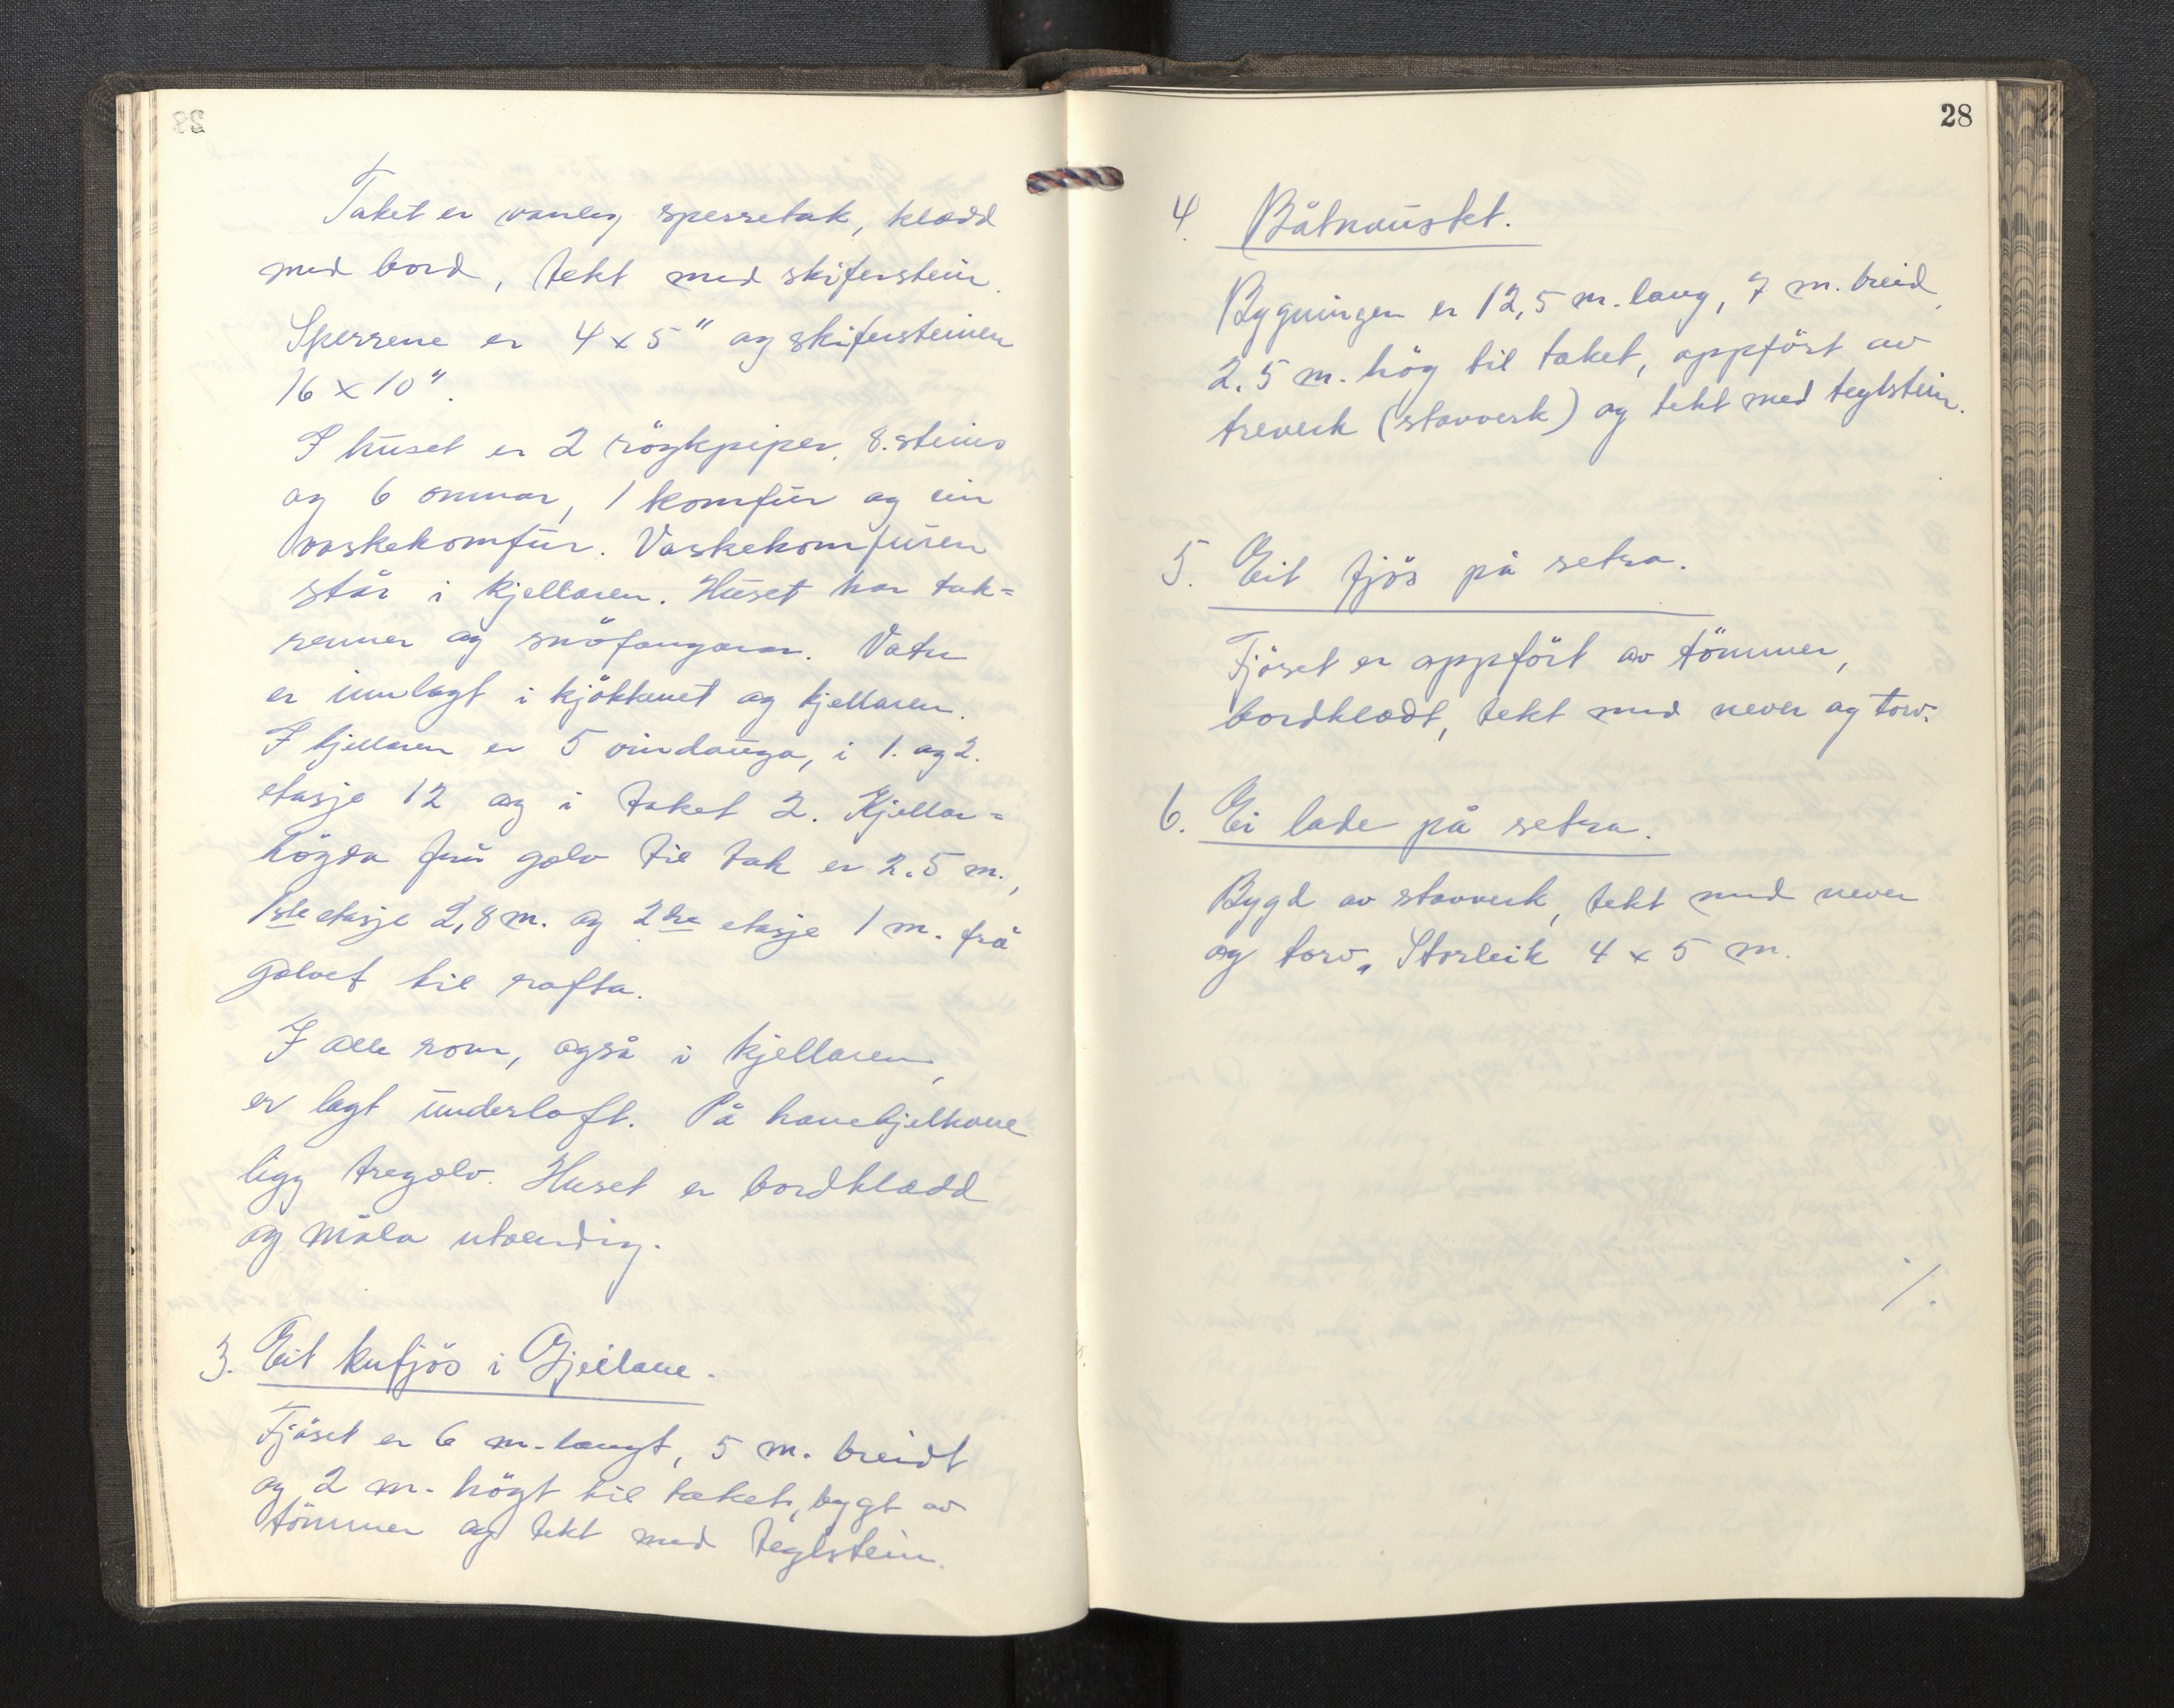 Taket er vanleg sperretak, klædd
med bord, tekt med skiferstein.
Sperrene er 4 x 5" og skifersteinen
16 x 10".
I huset er 2 röykpiper, 8. steins
og 6 omnar, 1 komfur og ein
vaskekomfur. Vaskekomfuren
står i kjellaren. Huset har tak=
renner og snöfangarar. Vatn
er innlagt i kjökkenet og kjellaren.
I kjellaren er 5 vindauga, i 1. og 2.
etasje 12 og i taket 2. Kjellar=
högda frå golv til tak er 2.5 m.,
1ste etasje 2,8 m. og 2dre etasje 1 m. frå
golvet til rafta.
I alle rom, også i kjellaren,
er lagt underloft. På hanebjelkane
ligg tregolv. Huset er bordklædd
og måla utvendig.
3. Eit kufjös i Gjeilane.
Fjöset er 6 m. langt, 5 m. breidt
og 2 m. högt til taket, bygt av
tömmer og tekt med teglstein.
28
4. Båtnaustet.
Bygningen er 12,5 m. lang, 7 m. breid,
2.5 m. hög til taket, oppfört av
treverk (stavverk) og tekt med teglstein.
5. Eit fjös på setra.
Fjöset er oppfört av tömmer,
bordklædt, tekt med never og torv.
6. Ei lade på setra.
Bygd av stavverk, tekt med never
og torv. Storleik 4 x 5 m.
/.